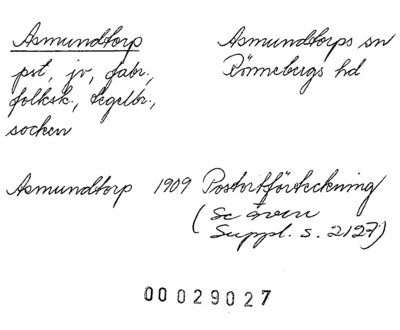 Asmundtorp
pst, jv, fabr.,
folksk., tegelbr.,
socken
Asmundtorps sn
Rönnebergs hd
Asmundtorp 1909 Postortförteckning
(Se även
Suppl. s. 2127)
00029027